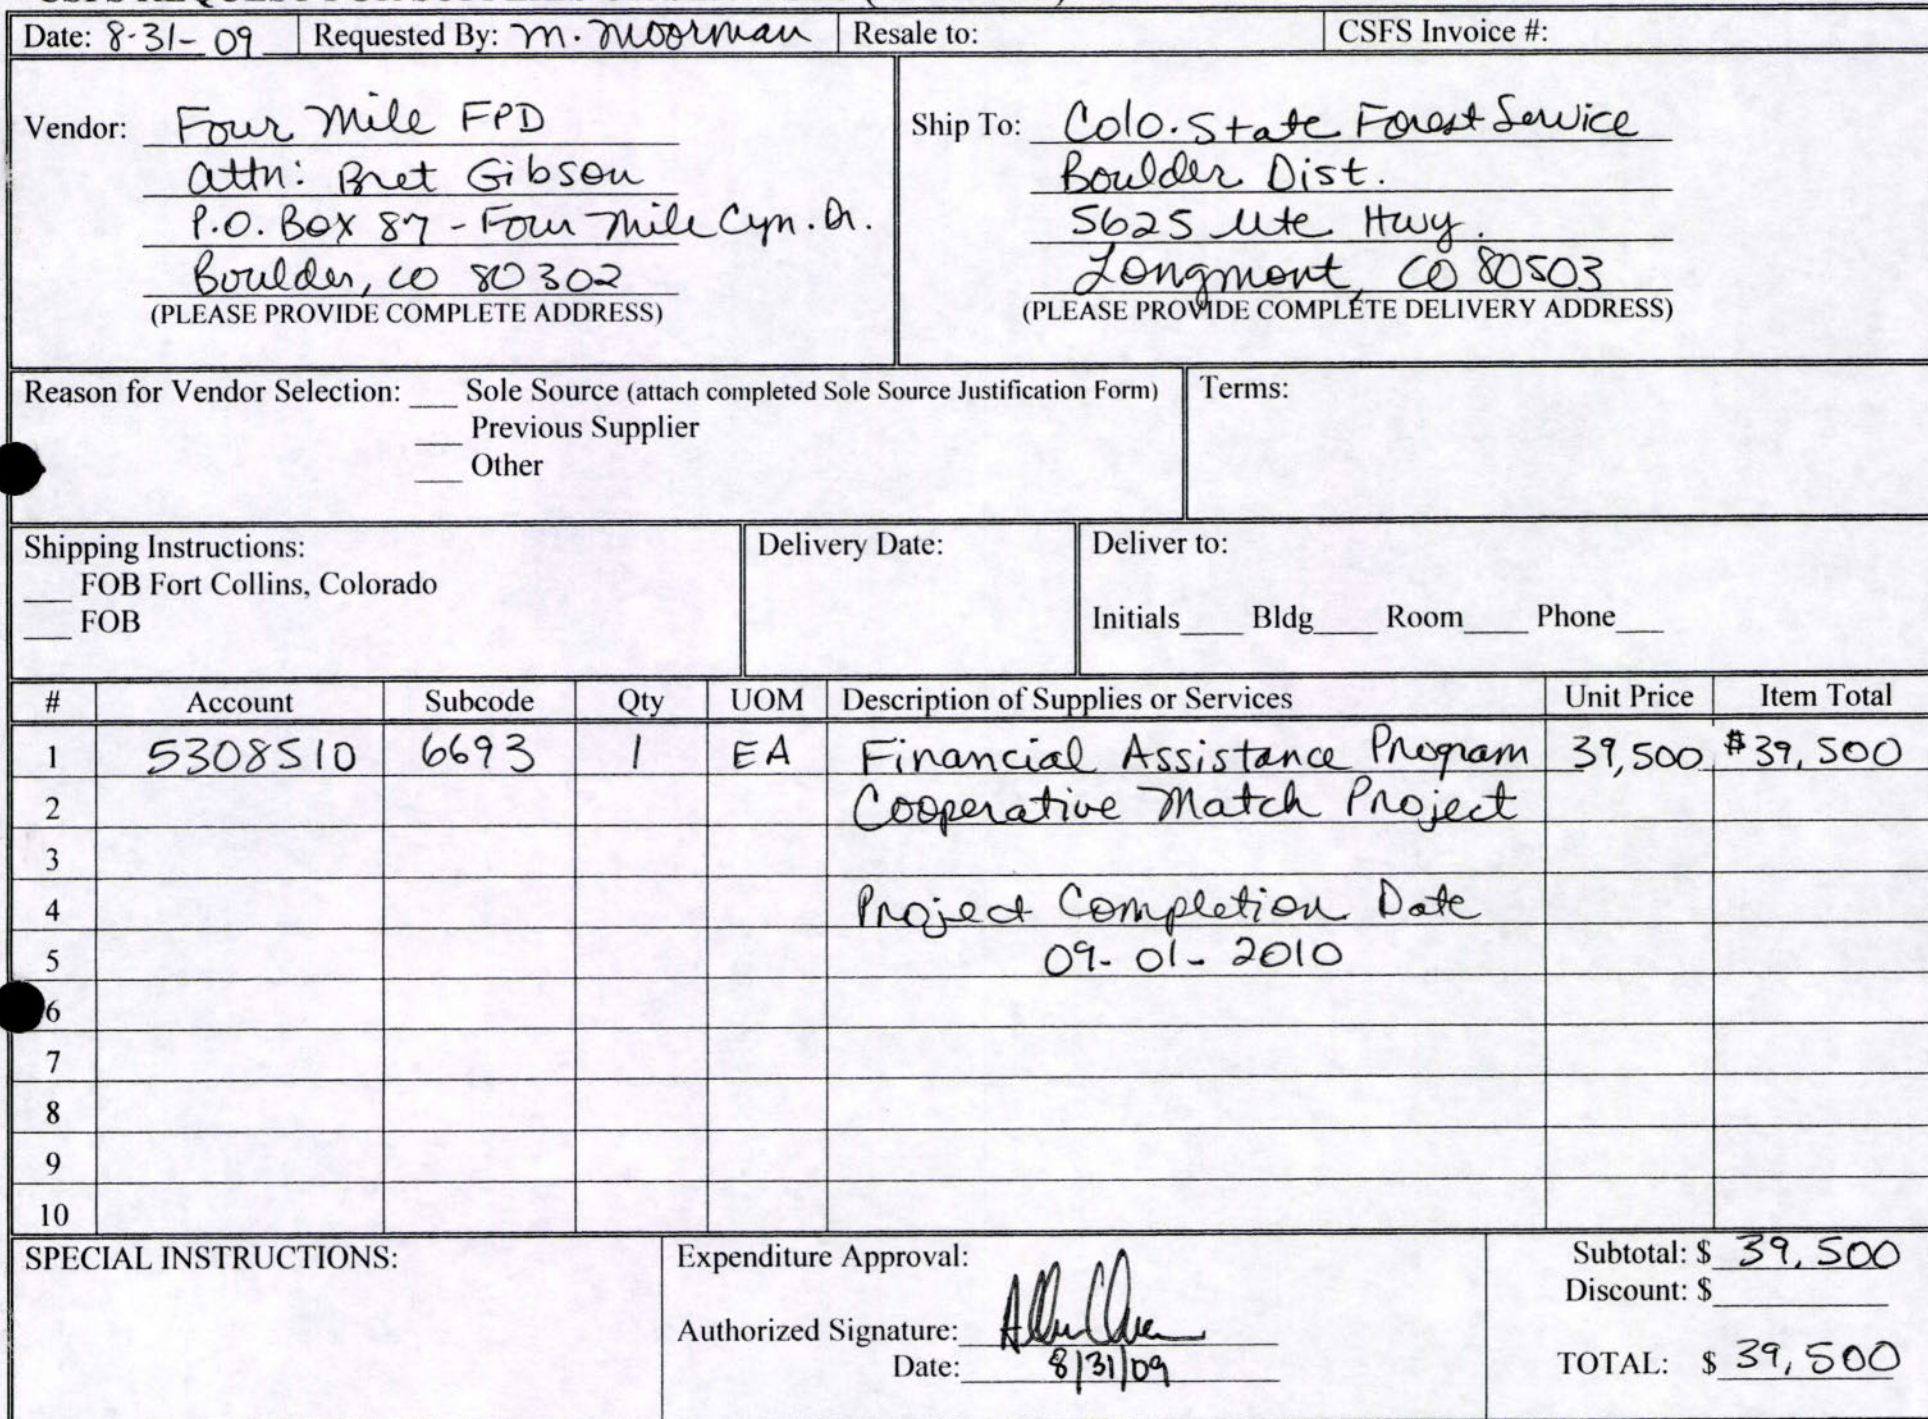 Date: 8-31-09 Requested By: M. Moorman Resale to: CSFS Invoice #:
Vendor: Four Mile FPD
attn: Bret Gibson
P.O. Box 87 - Four Mile Cyn. Dr.
Boulder, CO 80302
(PLEASE PROVIDE COMPLETE ADDRESS)
Ship To: Colo. State Forest Service
Boulder Dist.
5625 Ute Hwy.
Longmont, CO 80503
(PLEASE PROVIDE COMPLETE DELIVERY ADDRESS)
Reason for Vendor Selection: ___ Sole Source (attach completed Sole Source Justification Form)
___ Previous Supplier
___ Other
Terms:
Shipping Instructions:
___ FOB Fort Collins, Colorado
___ FOB
Delivery Date:
Deliver to:
Initials____ Bldg____ Room____ Phone___
# Account Subcode Qty UOM Description of Supplies or Services Unit Price Item Total
1 5308510 6693 1 EA Financial Assistance Program 39,500 $39,500
2 Cooperative Match Project
3
4 Project Completion Date
5 09-01-2010
6
7
8
9
10
SPECIAL INSTRUCTIONS:
Expenditure Approval:
Authorized Signature:
Date: 8/31/09
Subtotal: $ 39,500
Discount: $
TOTAL: $ 39,500